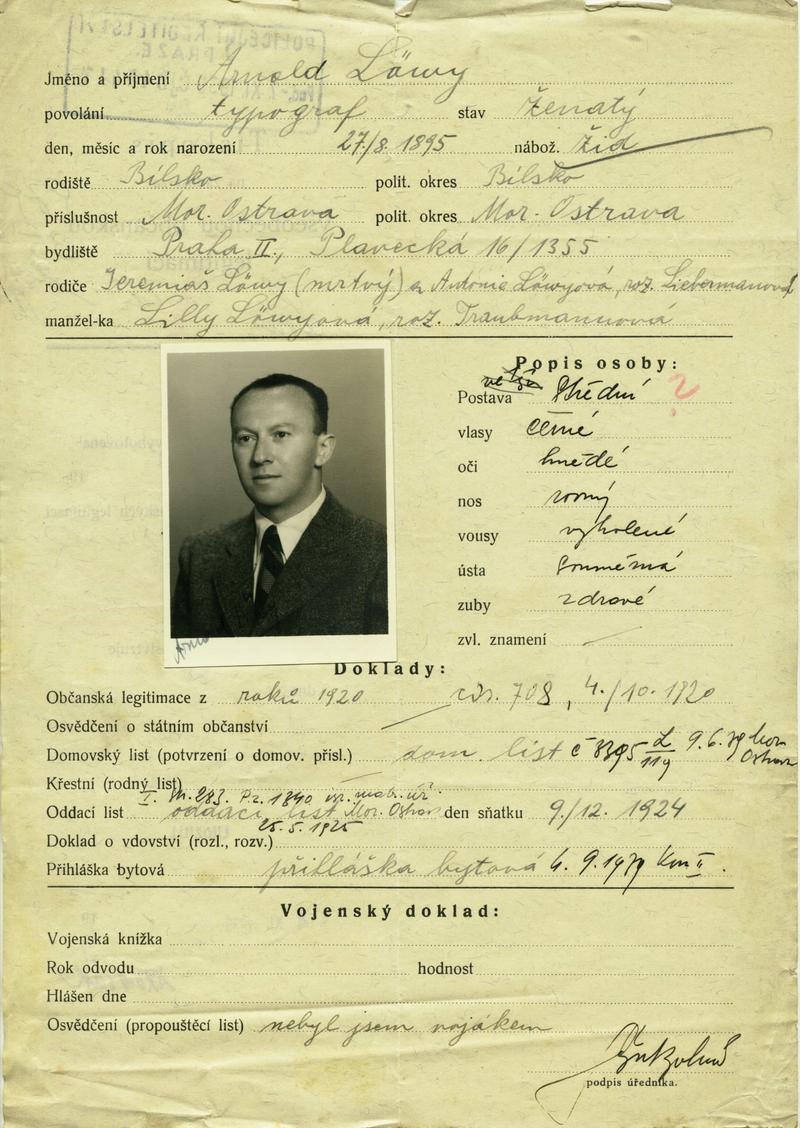 POLICEJNÍ ŘEDITELSTVÍ
PRAZE.
Jméno a příjmení Arnold Löwy
povolání typograf stav ženatý
den, měsíc a rok narození 27/8. 1895 nábož. žid
rodiště Bílsko polit. okres Bílsko
příslušnost Mor. Ostrava polit. okres Mor. Ostrava
bydliště Praha II., Plavecká 16/1355
rodiče Jeremiáš Löwy (mrtvý) a Antonie Löwyová, roz. Liebermannová
manžel-ka Lilly Löwyová, roz. Traubmannová
Popis osoby:
Postava střední ?
vlasy černé
oči hnědé
nos rovný
vousy vyholené
ústa souměrná
zuby zdravé
zvl. znamení —
Doklady:
Občanská legitimace z roků 1920 čís. 708, 4./10. 1920
Osvědčení o státním občanství —
Domovský list (potvrzení o domov. přísl.) dom. list č 9.6.39 Mor Ostrava
Křestní (rodný list)
Oddací list oddací list Mor. Ostrava den sňatku 9./12. 1924
25.5.1925
Doklad o vdovství (rozl., rozv.)
Přihláška bytová přihláška bytová 4. 9. 1939 Kom II.
Vojenský doklad:
Vojenská knížka
Rok odvodu hodnost
Hlášen dne
Osvědčení (propouštěcí list) nebyl jsem vojákem
podpis úředníka.